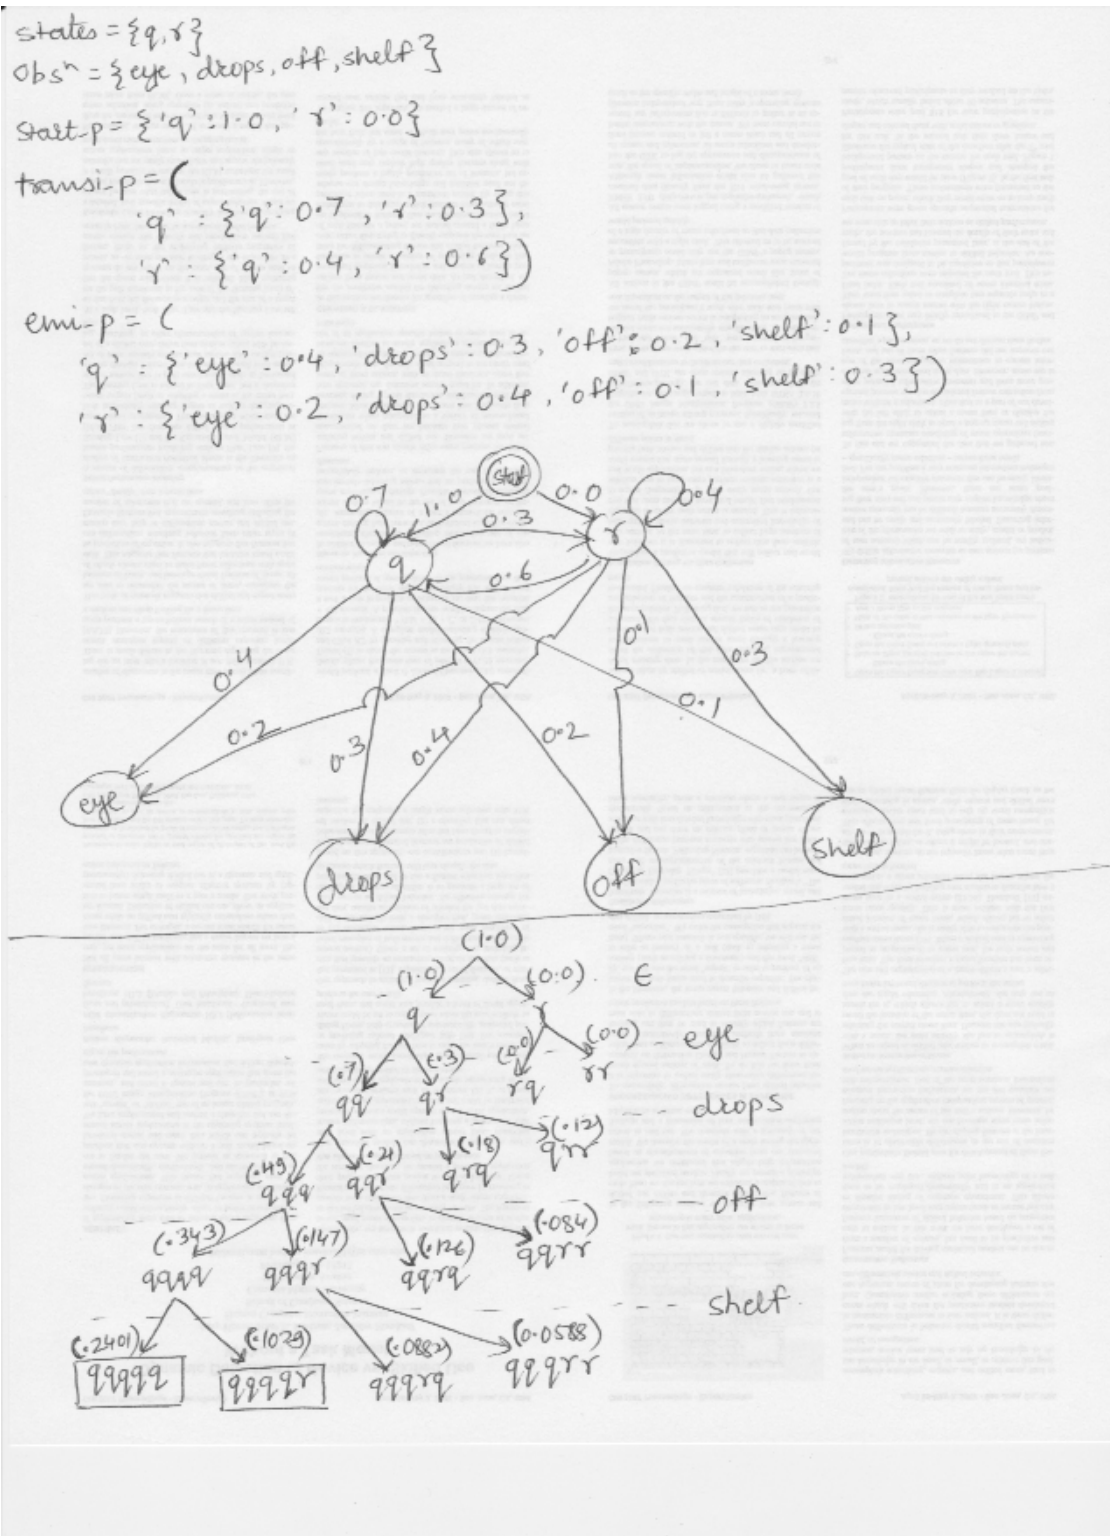 states = {q, r}
Obsⁿ = {eye, drops, off, shelf}
start-p = {'q' : 1.0, 'r' : 0.0}
transi-p = (
'q' : {'q' : 0.7, 'r' : 0.3},
'r' : {'q' : 0.4, 'r' : 0.6})
emi-p = (
'q' : {'eye' : 0.4, 'drops' : 0.3, 'off' : 0.2, 'shelf' : 0.1},
'r' : {'eye' : 0.2, 'drops' : 0.4, 'off' : 0.1, 'shelf' : 0.3})
start
0.7 1.0 0.0 0.4
0.3
q r
0.6
0.4 0.1 0.3
0.2 0.3 0.4 0.2 0.1
eye drops off shelf
(1.0)
(1.0) (0.0) ∈
q r
(.7) (.3) (0.0) (0.0) eye
qq qr rq rr
drops
(.49) (.21) (.18) (.12)
qqq qqr qrq qrr
off
(.343) (.147) (.126) (.084)
qqqq qqqr qqrq qqrr
shelf
(.2401) (.1029) (.0882) (0.0588)
qqqqq qqqqr qqqrq qqqrr